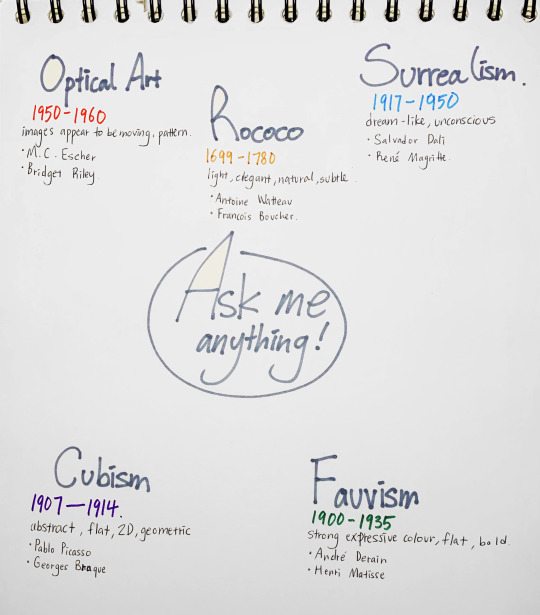 Optical Art
1950-1960
images appear to be moving, pattern.
• M.C. Escher
• Bridget Riley
Rococo
1699-1780
light, elegant, natural, subtle.
• Antoine Watteau
• Francois Boucher.
Surrealism.
1917-1950
dream-like, unconscious
• Salvador Dali
• René Magritte.
Ask me
anything!
Cubism
1907-1914.
abstract, flat, 2D, geometric
• Pablo Picasso
• Georges Braque
Fauvism
1900-1935
strong expressive colour, flat, bold.
• André Derain
• Henri Matisse